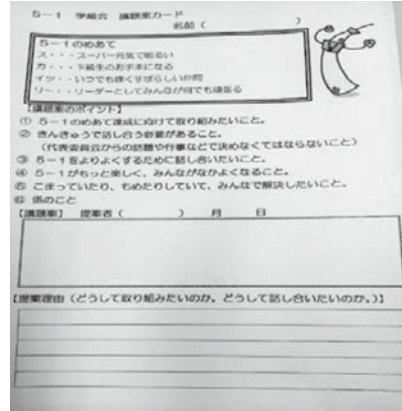 5－1 学級会 議題案カード
名前（ ）
5－1のめあて
ス・・・スーパー元気で明るい
カ・・・下級生のお手本になる
イツ・・いつでも輝くすばらしい仲間
リー・・リーダーとしてみんなが何でも頑張る
【議題案のポイント】
① 5－1のめあて達成に向けて取り組みたいこと。
② きんきゅうで話し合う必要があること。
（代表委員会からの話題や行事などで決めなくてはならないこと）
③ 5－1をよりよくするために話し合いたいこと。
④ 5－1がもっと楽しく、みんながなかよくなること。
⑤ こまっていたり、もめたりしていて、みんなで解決したいこと。
⑥ 係のこと
【議題案】 提案者（ ） 月 日
【提案理由（どうして取り組みたいのか。どうして話し合いたいのか。）】